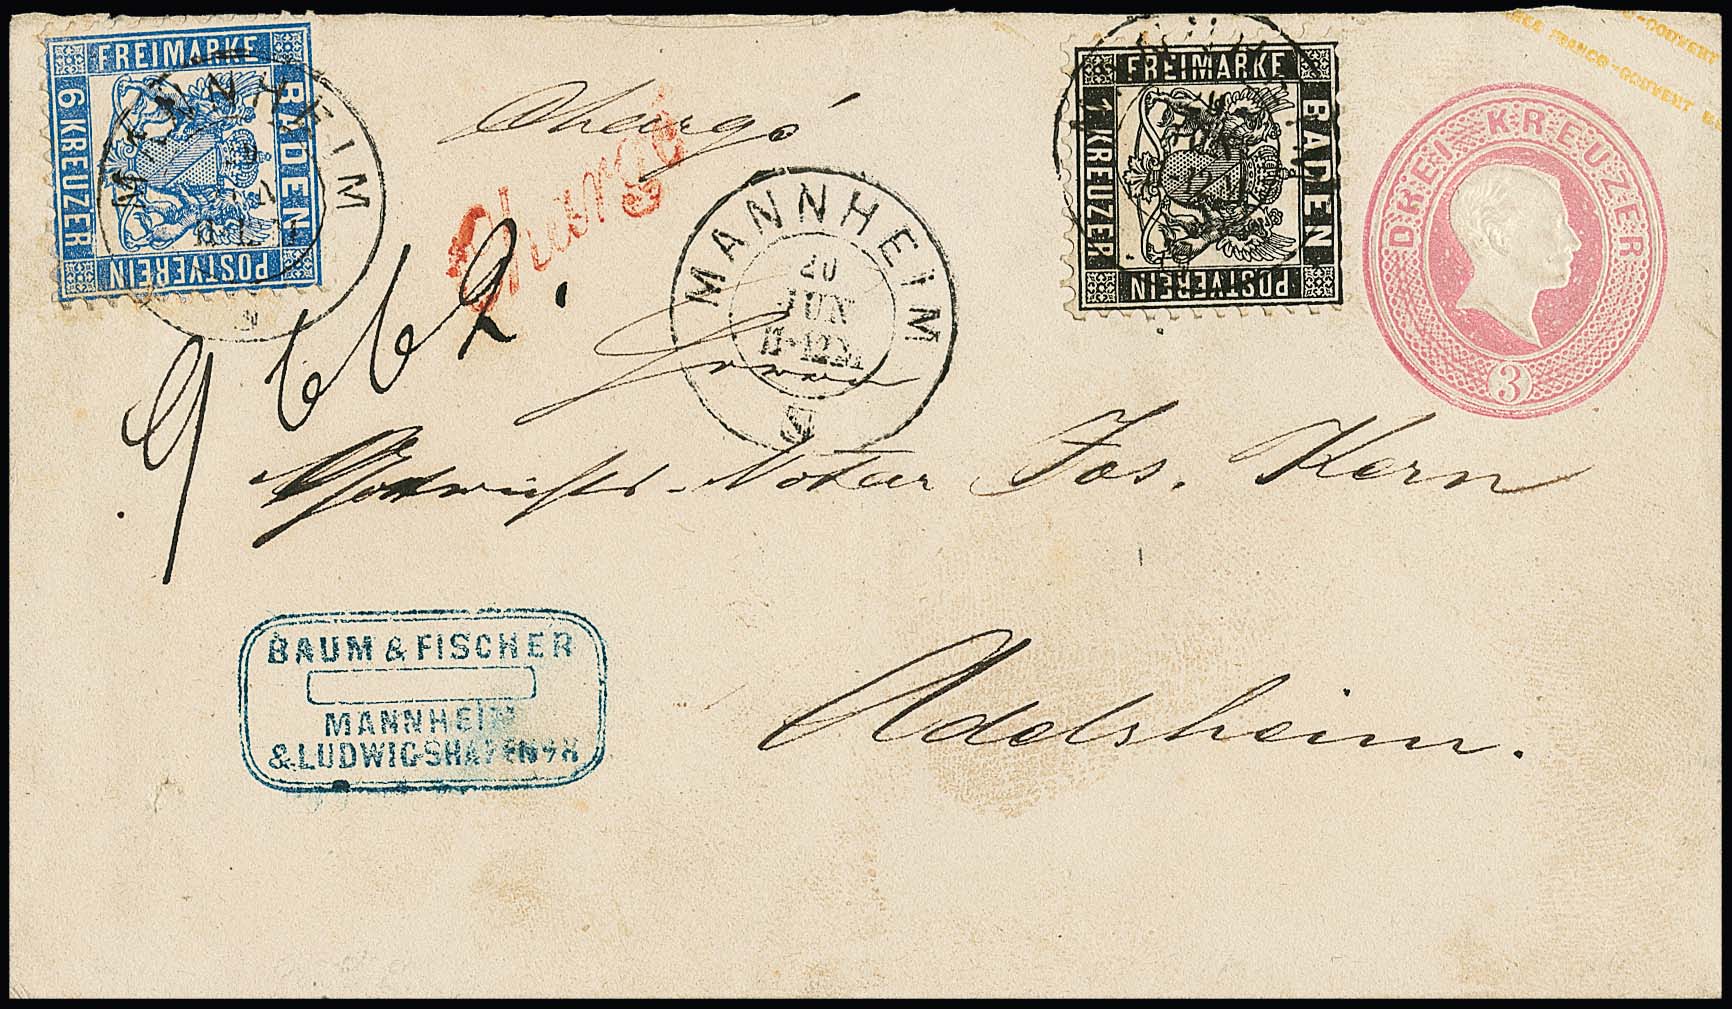 FREIMARKE
BADEN
POSTVEREIN
6 KREUZER
MANNHEIM
Chargé
Chargé
FREIMARKE
BADEN
POSTVEREIN
1 KREUZER
DREI KREUZER
3
FRANCO-COUVERT
MANNHEIM
20
JUN
11-12M
9662.
Notar Jos. Kern
Adelsheim.
BAUM & FISCHER
MANNHEIM
& LUDWIGSHAFEN